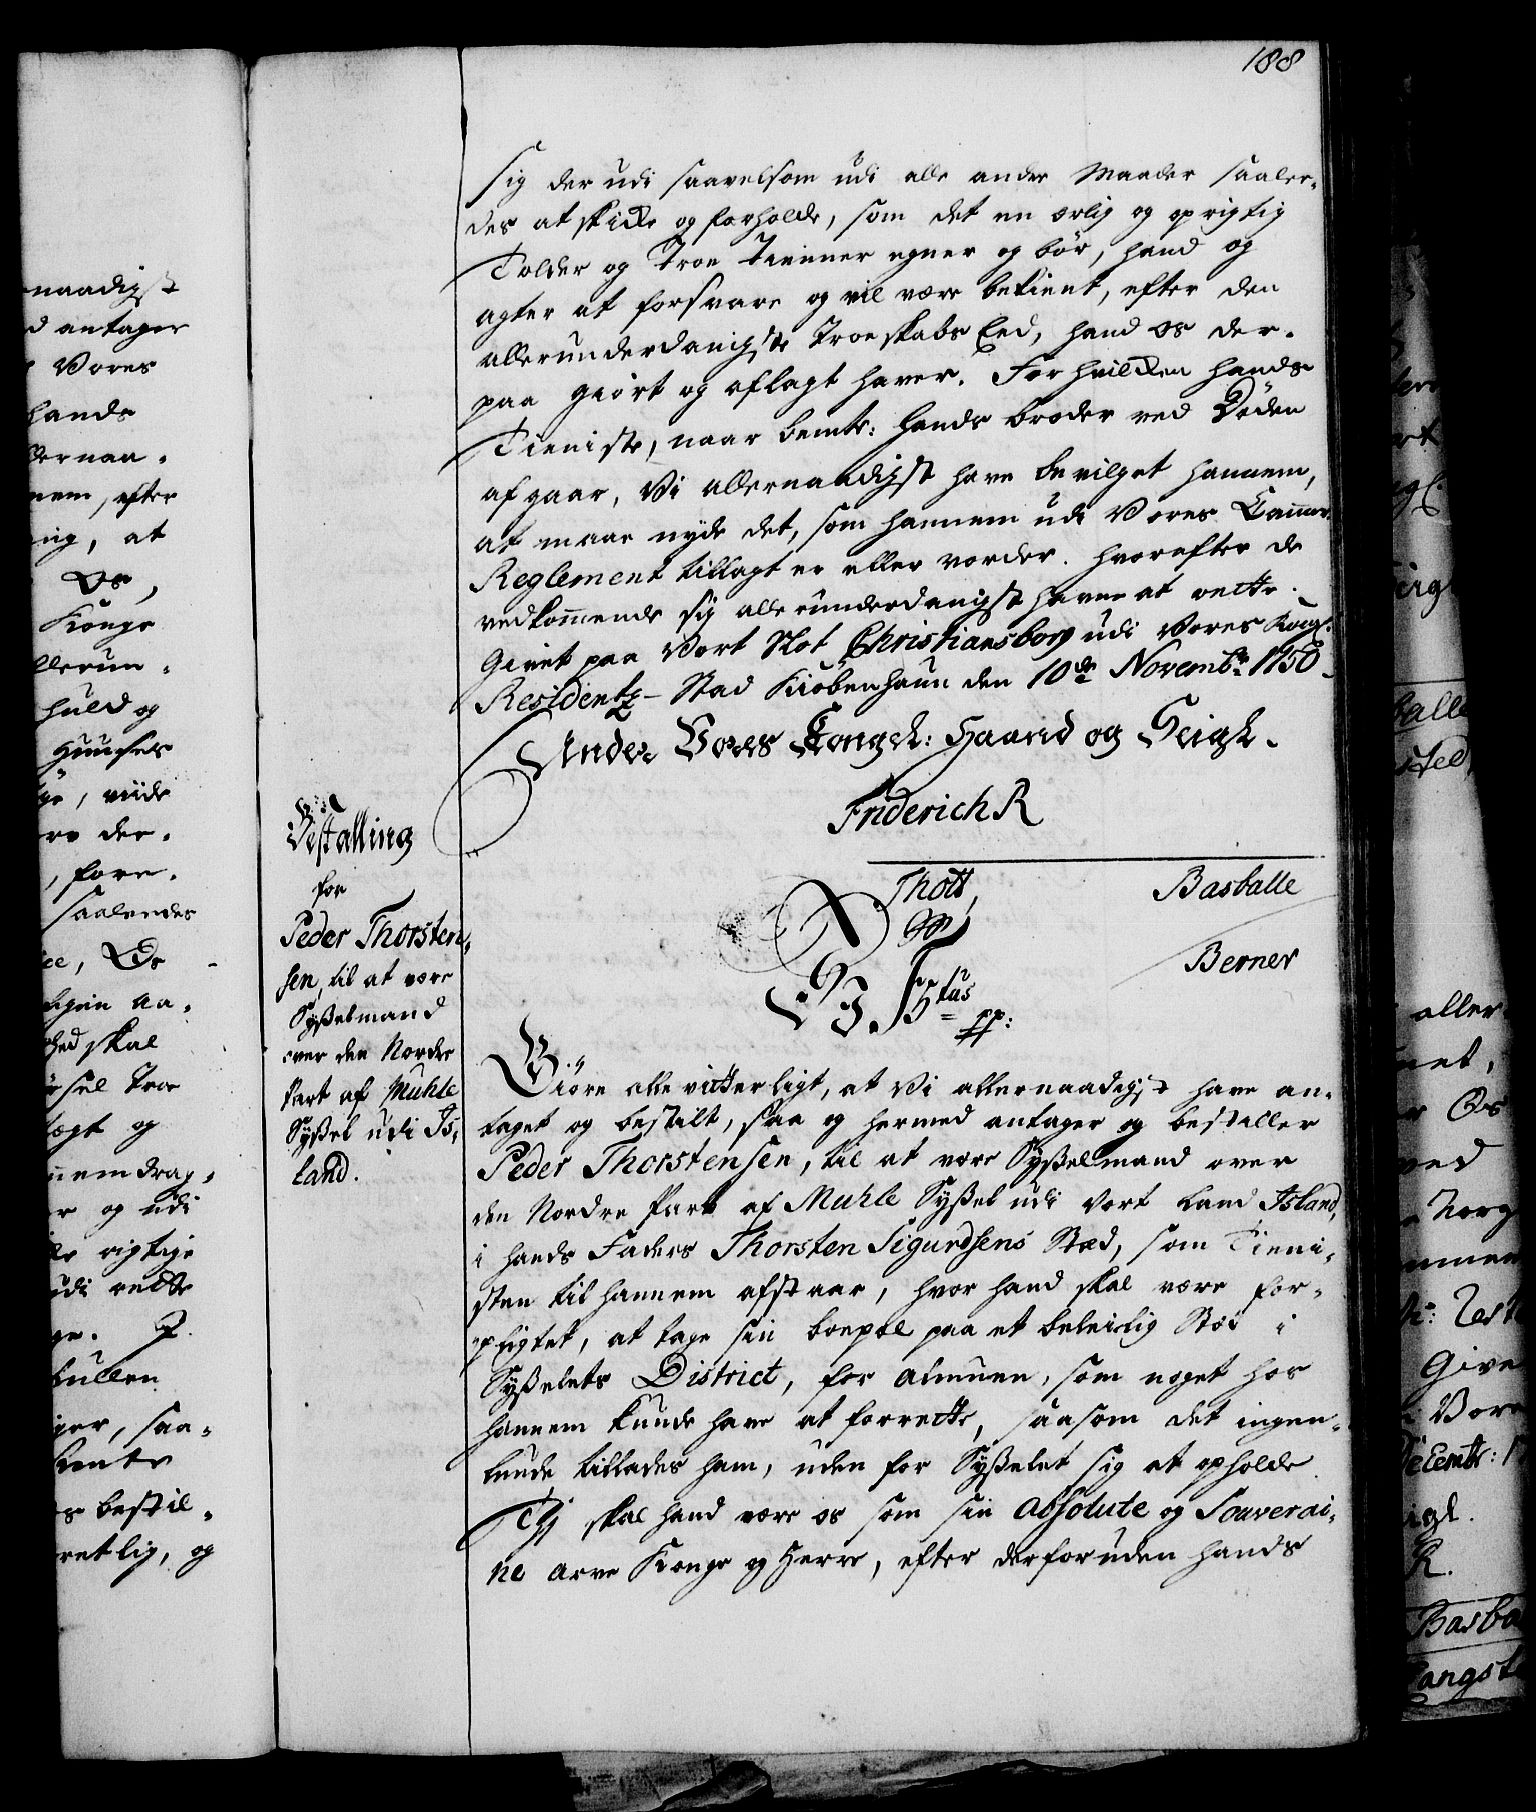 188
Sig der udi saavelsom udi alle andre Maader saale-
des at skicke og forholde, som det en ærlig og oprigtig
Tolder og Troe Tienner egner og bör, hand og
agter at forsvare og vil være bekient, efter den
allerunderdanigste Troeskabs Eed, hand os der-
paa giört og aflagt haver. For hvilcken hands
Tieniste, naar bemte: hands broder ved Döden
afgaar, Vi allernaadigst have bevilget hannem,
at maae nyde det, som hannem udi Vores Cammer
Reglement tillagt er eller vorder. hvorefter de
vedkommende sig allerunderdanigst haver at rette.
Givet paa Vort Slot Christiansborg udi Vores Kongl:
Residentz-Stad Kiöbenhaun den 10de Novembr: 1750.
Under Vores Kongel: Haand og Seigl.
Friderich R
Thott, Basballe
Berner
Bestalling
for
Peder Thorsten-
sen, til at være
Sysselmand
over den Nordre
Part af Muhle
Syssel udi Is-
land.
G. F. 5tus
pp:
Giöre alle vitterligt, at Vi allernaadigst have an-
taget og bestilt, saa og hermed antager og bestiller
Peder Thorstensen, til at være Sysselmand over
den Nordre Part af Muhle Syssel udi Vort Land Island,
i hands Faders Thorsten Sigurdsens Stæd, som Tieni-
sten til hannem afstaar, hvor hand skal være for-
pligtet, at tage sin boepæl paa et beleilig Stæd i
Sysselets District, for almuen, som noget hos
hannem kunde have at forrette, saasom det ingen-
lunde tillades ham, uden for Sysselet sig at opholde
Thj skal hand være os som sin absolute og Souverai-
ne Arve Konge og Herre, efter derforuden hands
naadigst
d antager
Vores
hands
llernaa-
nem, efter
ing, at
Os,
Konge
llerun-
huld og
Huuses
ge, viide
ere der-
, fore-
saaledes
ee, Os
ligen aa-
hed skal
rsel Troe
lægt og
nnem drag-
r og udi
lle rigtige
udi rette
ge. J.
fullen
ger, saa-
bemte
s bestil-
retlig, og